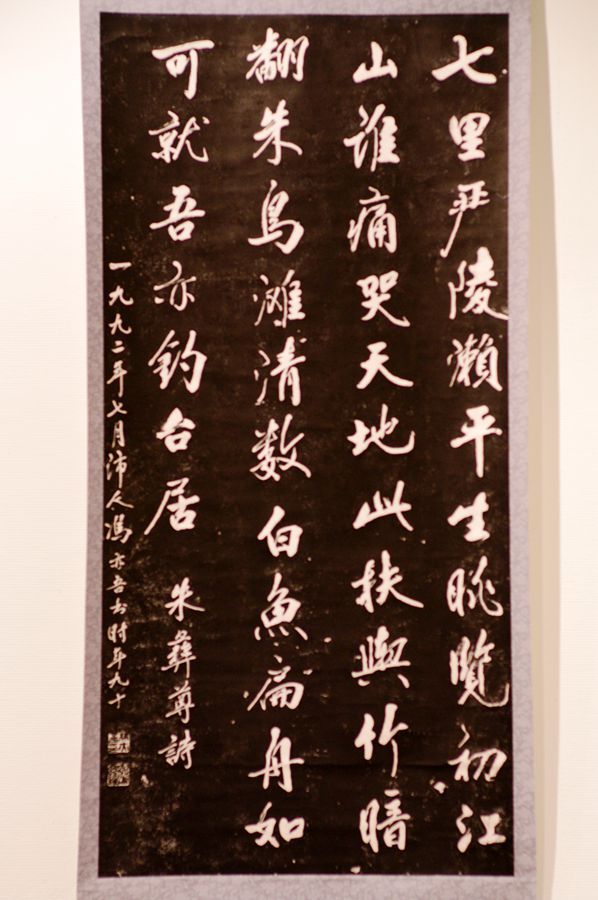 七里严陵濑平生眺览初江
山谁痛哭天地此扶舆竹暗
翻朱鸟滩清数白鱼扁舟如
可就吾亦钓台居 朱彝尊詩
一九九二年七月沛人冯亦吾书时年九十